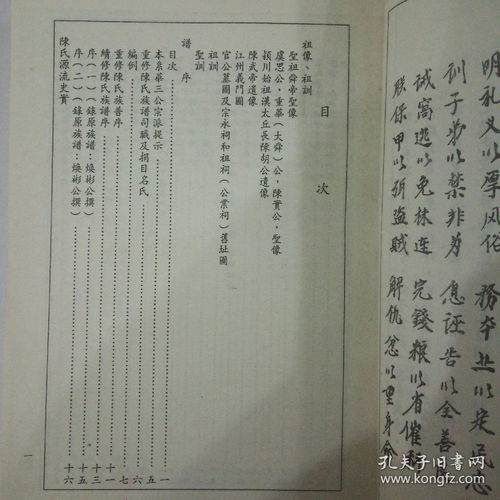 明礼义以厚风俗
務本业以定民志
訓子弟以禁非为
息誣告以全善
誡窩逃以免株连
完錢粮以省催科
联保甲以弭盗贼
解仇忿以重身命
目次
祖像、祖訓
聖祖舜帝聖像
虞思公,重華(大舜)公,陳實公,聖像
潁川始祖漢太丘長陳胡公遺像
陳武帝遺像
江州義門圖
官公墓圖及宗永祠和祖祠(公業祠)舊址圖
聖訓
譜序
目次……一
本系華三公宗派提示……五
重修陳氏族譜司職及捐目名氏……六
編例……七
重修陳氏族譜序……十
續修陳氏族譜序……十一
序(一)(錄原族譜:煥彬公撰)……十三
序(二)(錄原族譜:煥彬公撰)……十五
陳氏源流史實……十六
一
孔夫子旧书网